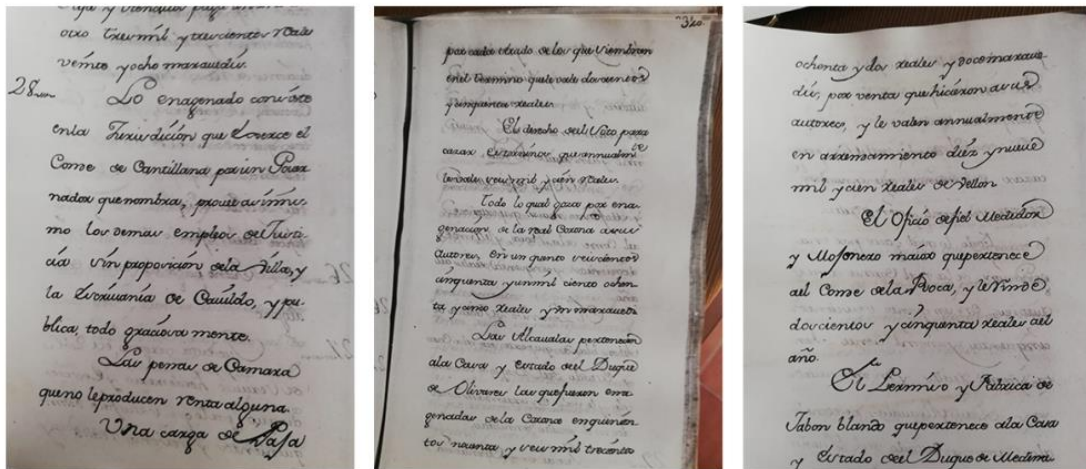 Paja y
otro tres mil y trescientos Reales
veinte y ocho maravedis.
28
Lo enagenado consiste
en la Jurisdición que exerce el
Conde de Cantillana por un Gover
nador que nombra, provee asimis
mo los demas empleos de Justi
cia sin proposición de la Villa, y
la Escrivania de Cavildo, y pu
blica, todo graciosamente.
Las penas de Camara
que no le producen renta alguna.
Una carga de Paja
320.
por cada arado de los que siembren
en el termino que le vale doscientos
y cinquenta reales.
El derecho del Soto para
cazar, extraños que annualmte
le vale seis mil y cien Reales.
Todo lo qual goza por ena
genación de la real Corona a sus
Autores, en un quento seiscientos
cinquenta y un mil ciento ochen
ta y cinco reales y un maravedi
Las Alcavalas pertenecen
a la Casa y estado del Duque
de Olivares las que fueron ena
genadas de la Corona en quinien
tos noventa y seis mil trecientos
ochenta y dos reales y doce marave
dis, por venta que hicieron a sus
autores, y le valen annualmente
en arrendamiento diez y nueve
mil y cien reales de vellon
El Oficio de fiel Medidor
y Mojonero maior que pertenece
al Conde de la Roca, y le rinde
doscientos y cinquenta reales al
año.
El Permiso y Fabrica de
Jabon blando que pertenece a la Casa
y Estado del Duque de Medina